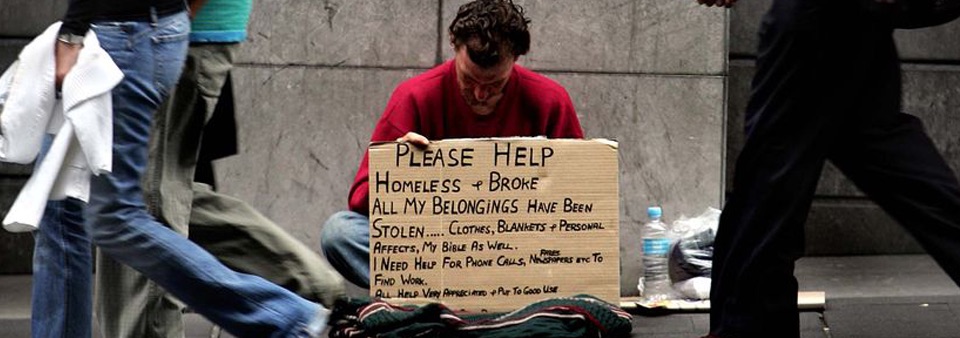 PLEASE HELP
HOMELESS + BROKE
ALL MY BELONGINGS HAVE BEEN
STOLEN..... CLOTHES, BLANKETS + PERSONAL
AFFECTS, MY BIBLE AS WELL..
I NEED HELP FOR PHONE CALLS, FARES NEWSPAPERS ETC TO
FIND WORK.
ALL HELP VERY APPRECIATED + PUT TO GOOD USE